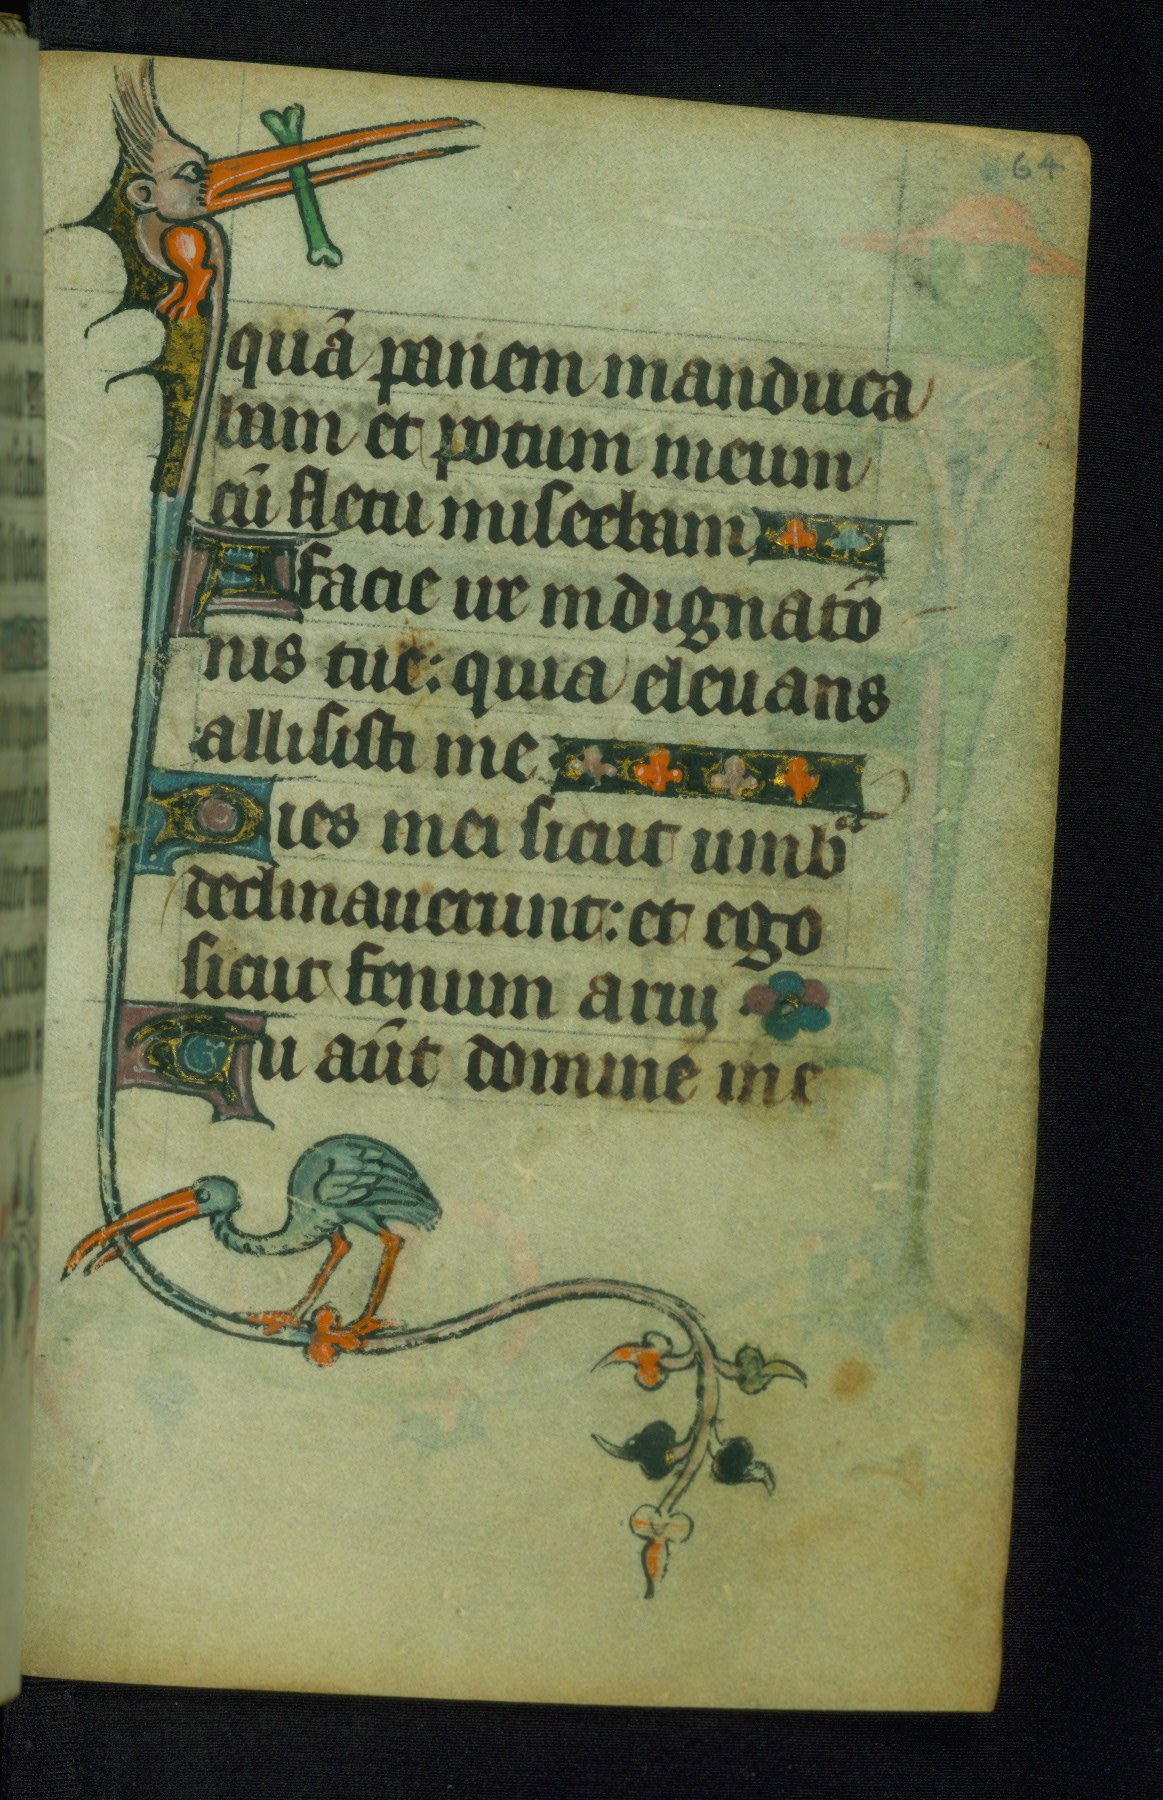 64
quā panem manduca
bam et potum meum
cū fletu miscebam
A facie ire indignatō
nis tue: quia eleuans
allisisti me
Dies mei sicut umbᵃ
declinauerunt: et ego
sicut fenum arui
Tu aūt domine in e